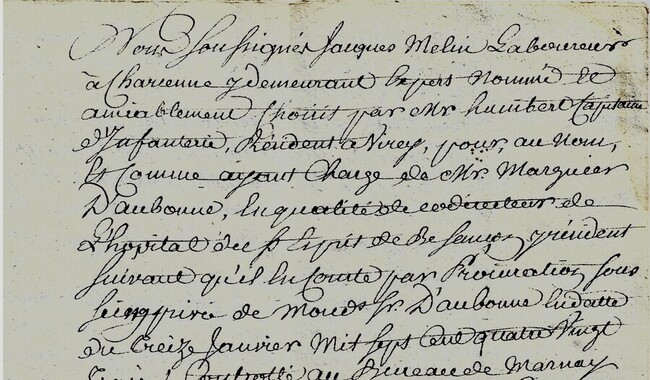 Nous Soussignés Jacques Melin Laboureur
à Charcenne y demeurant Expert nommé et
amiablement Choisit par Mr humbert Capitaine
d'Infanterie, Résident a Virey, pour, au nom,
Et Comme ayant Charge de Mr. Marquier
D'aubonne, En qualité de codirecteur de
L'hopital du St Esprit de Besançon y résident
suivant qu'il En Conte par Procuration sous
seing privé de Mond. Sr. D'aubonne En datte
du treize Janvier Mil sept Cent quatre Vingt
Trois Controllé au Bureau de Marnay